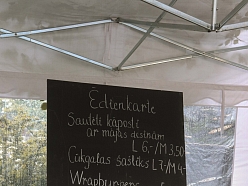 Ēdienkarte
Sautēti kāposti
ar mājas desiņām
L 6,-/M 3,50
Cūkgaļas šašliks L 7-/M 4,-